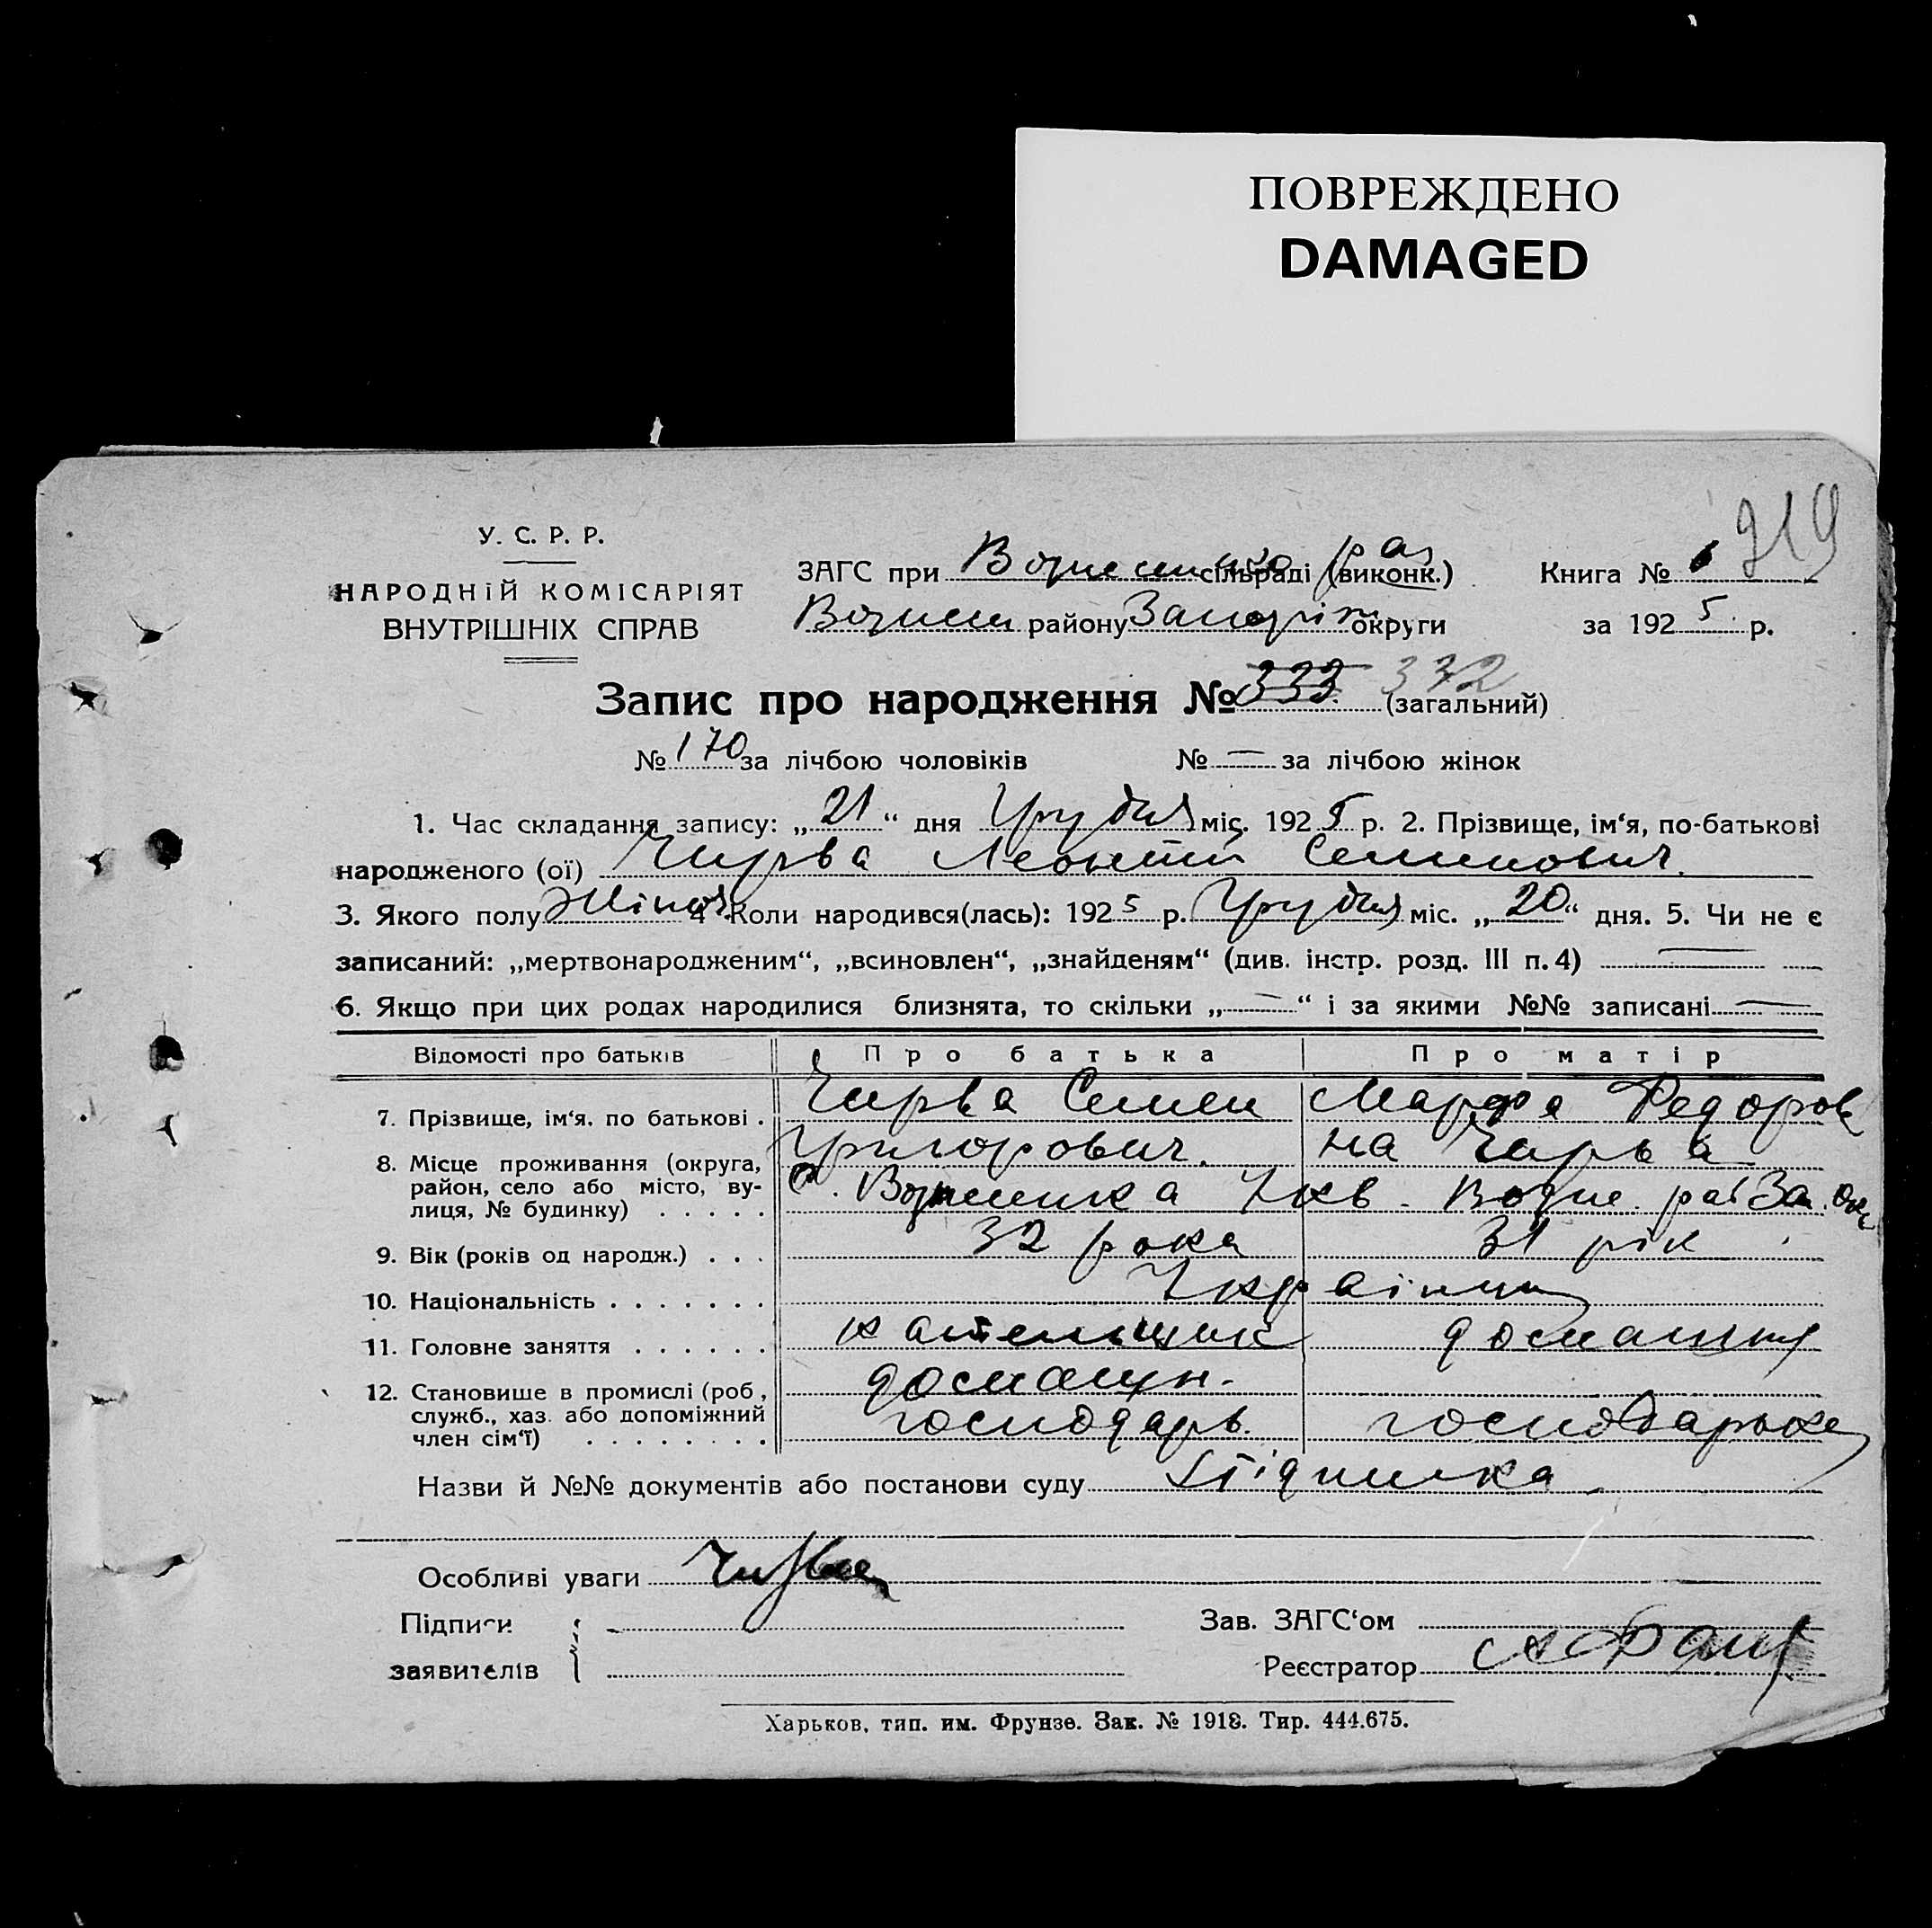 ПОВРЕЖДЕНО
DAMAGED
919
У. С. Р. Р.
НАРОДНІЙ КОМІСАРІЯТ
ВНУТРІШНІХ СПРАВ
ЗАГС при сільраді (виконк.) Книга №
району Запоріж округи за 1925 р.
Запис про народження № 333 372 (загальний)
№ 170 за лічбою чоловіків № — за лічбою жінок
1. Час складання запису: „21“ дня Грудня міс. 1925 р. 2. Прізвище, ім'я, по-батькові
народженого (ої) Чирва Леонтий Семенович.
3. Якого полу Жіноч 4 Коли народився(лась): 1925 р. Грудня міс. „20“ дня. 5. Чи не є
записаний: „мертвонародженим“, „всиновлен“, „знайденям“ (див. інстр. розд. III п. 4) —
6. Якщо при цих родах народилися близнята, то скільки „—“ і за якими №№ записані —
Відомості про батьків Про батька Про матір
7. Прізвище, ім'я. по батькові . Чирва Семен Григорович. Марфа Федоровна Чирва
8. Місце проживання (округа, район, село або місто, вулиця, № будинку) . . . . . с. Вознесенка
9. Вік (років од народж.) . . . 32 рока 31 рік
10. Національність . . . . . . . Українці
11. Головне заняття . . . . . . домашня
12. Становище в промислі (роб, служб., хаз. або допоміжний член сім'ї) . . . . . . . . домашн. господарь. господарька
Назви й №№ документів або постанови суду Підписка
Особливі уваги Чирва
Підписи
заявителів
Зав. ЗАГС'ом
Реєстратор
Харьков, тип. им. Фрунзе. Зак. № 1918. Тир. 444.675.